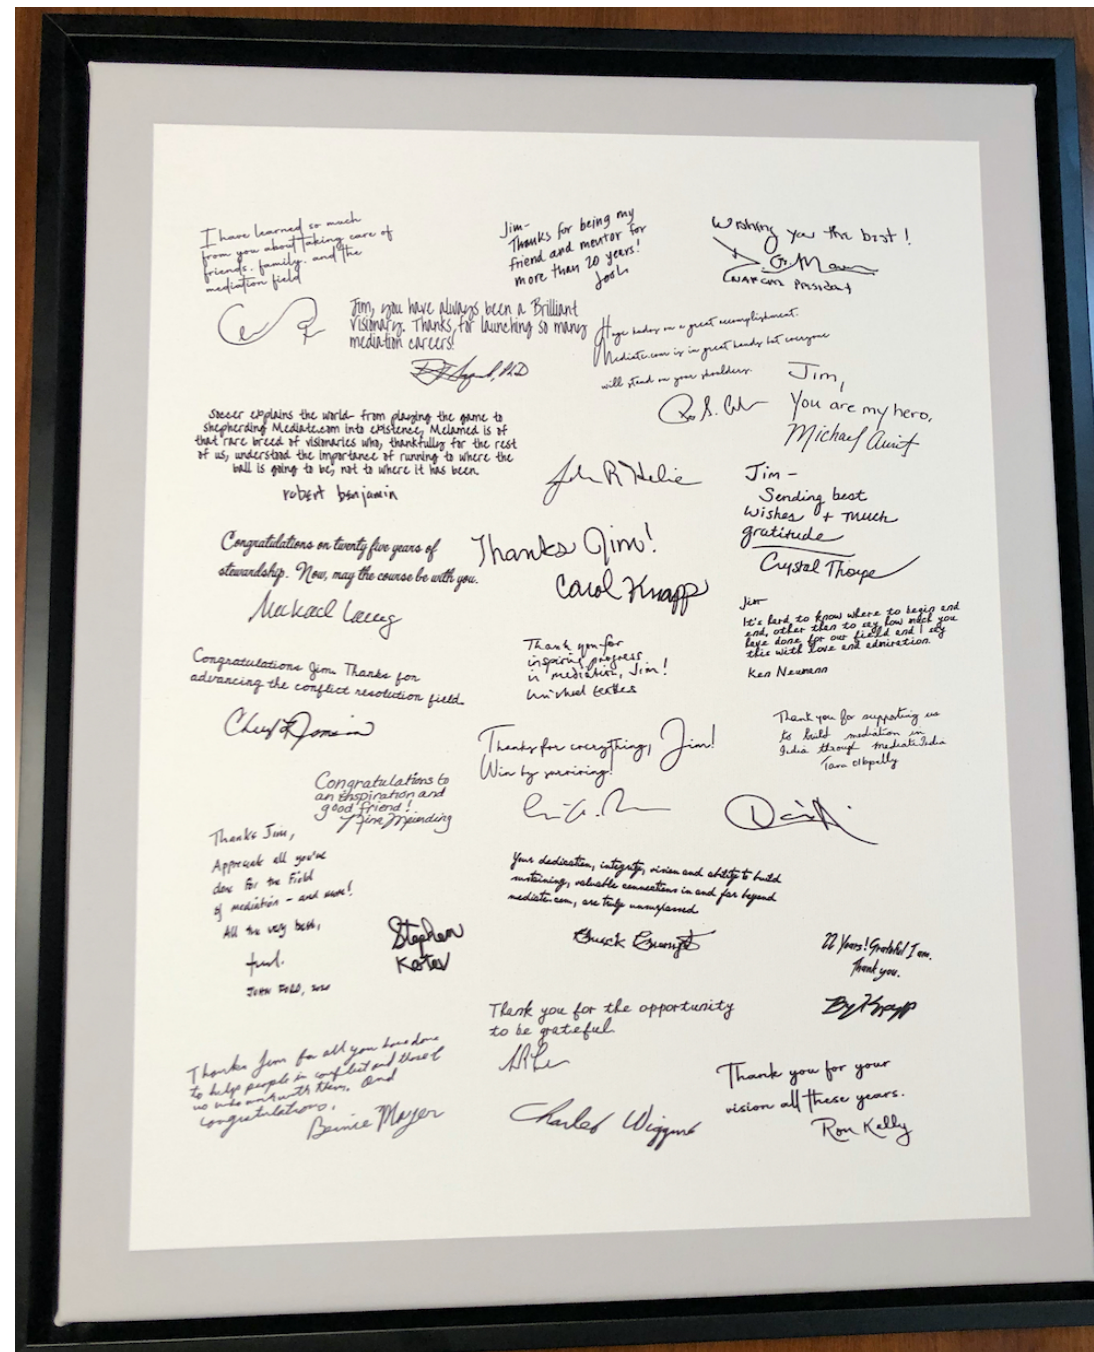 I have learned so much
from you about taking care of
friends, family, and the
mediation field
Jim-
Thanks for being my
friend and mentor for
more than 20 years!
Josh
Wishing you the best!
President
Jim, you have always been a Brilliant
visionary. Thanks, for launching so many
mediation careers!
Ph.D
Huge kudos on a great accomplishment.
Mediate.com is in great hands but everyone
will stand on your shoulders.
Jim,
You are my hero,
Michael Aurit
Soccer explains the world- from playing the game to
shepherding Mediate.com into existence, Melamed is of
that rare breed of visionaries who, thankfully for the rest
of us, understood the importance of running to where the
ball is going to be, not to where it has been.
robert benjamin
John R Helie
Jim -
Sending best
wishes + much
gratitude
Crystal Thorpe
Congratulations on twenty five years of
stewardship. Now, may the course be with you.
Michael Lang
Thanks Jim!
Carol Knapp
Jim-
It's hard to know where to begin and
end, other than to say how much you
have done for our field and I say
this with love and admiration.
Ken Neumann
Congratulations Jim. Thanks for
advancing the conflict resolution field.
Thank you for
inspiring progress
in mediation, Jim!
Thanks for everything, Jim!
Win by surviving!
Thank you for supporting us
to build mediation in
India through MediateIndia
Tara Ollapally
Congratulations to
an inspiration and
good friend!
Nina Meierding
Thanks Jim,
Appreciate all you've
done for the field
of mediation - and more!
All the very best,
John Ford, 2020
Stephen
Kotev
Your dedication, integrity, vision and ability to build
sustaining, valuable connections in and far beyond
mediate.com, are truly unsurpassed
22 Years! Grateful I am.
Thank you.
Thank you for the opportunity
to be grateful.
Thanks Jim for all you have done
to help people in conflict and those of
us who work with them. And
congratulations.
Bernie Mayer
Charles Wiggins
Thank you for your
vision all these years.
Ron Kelly